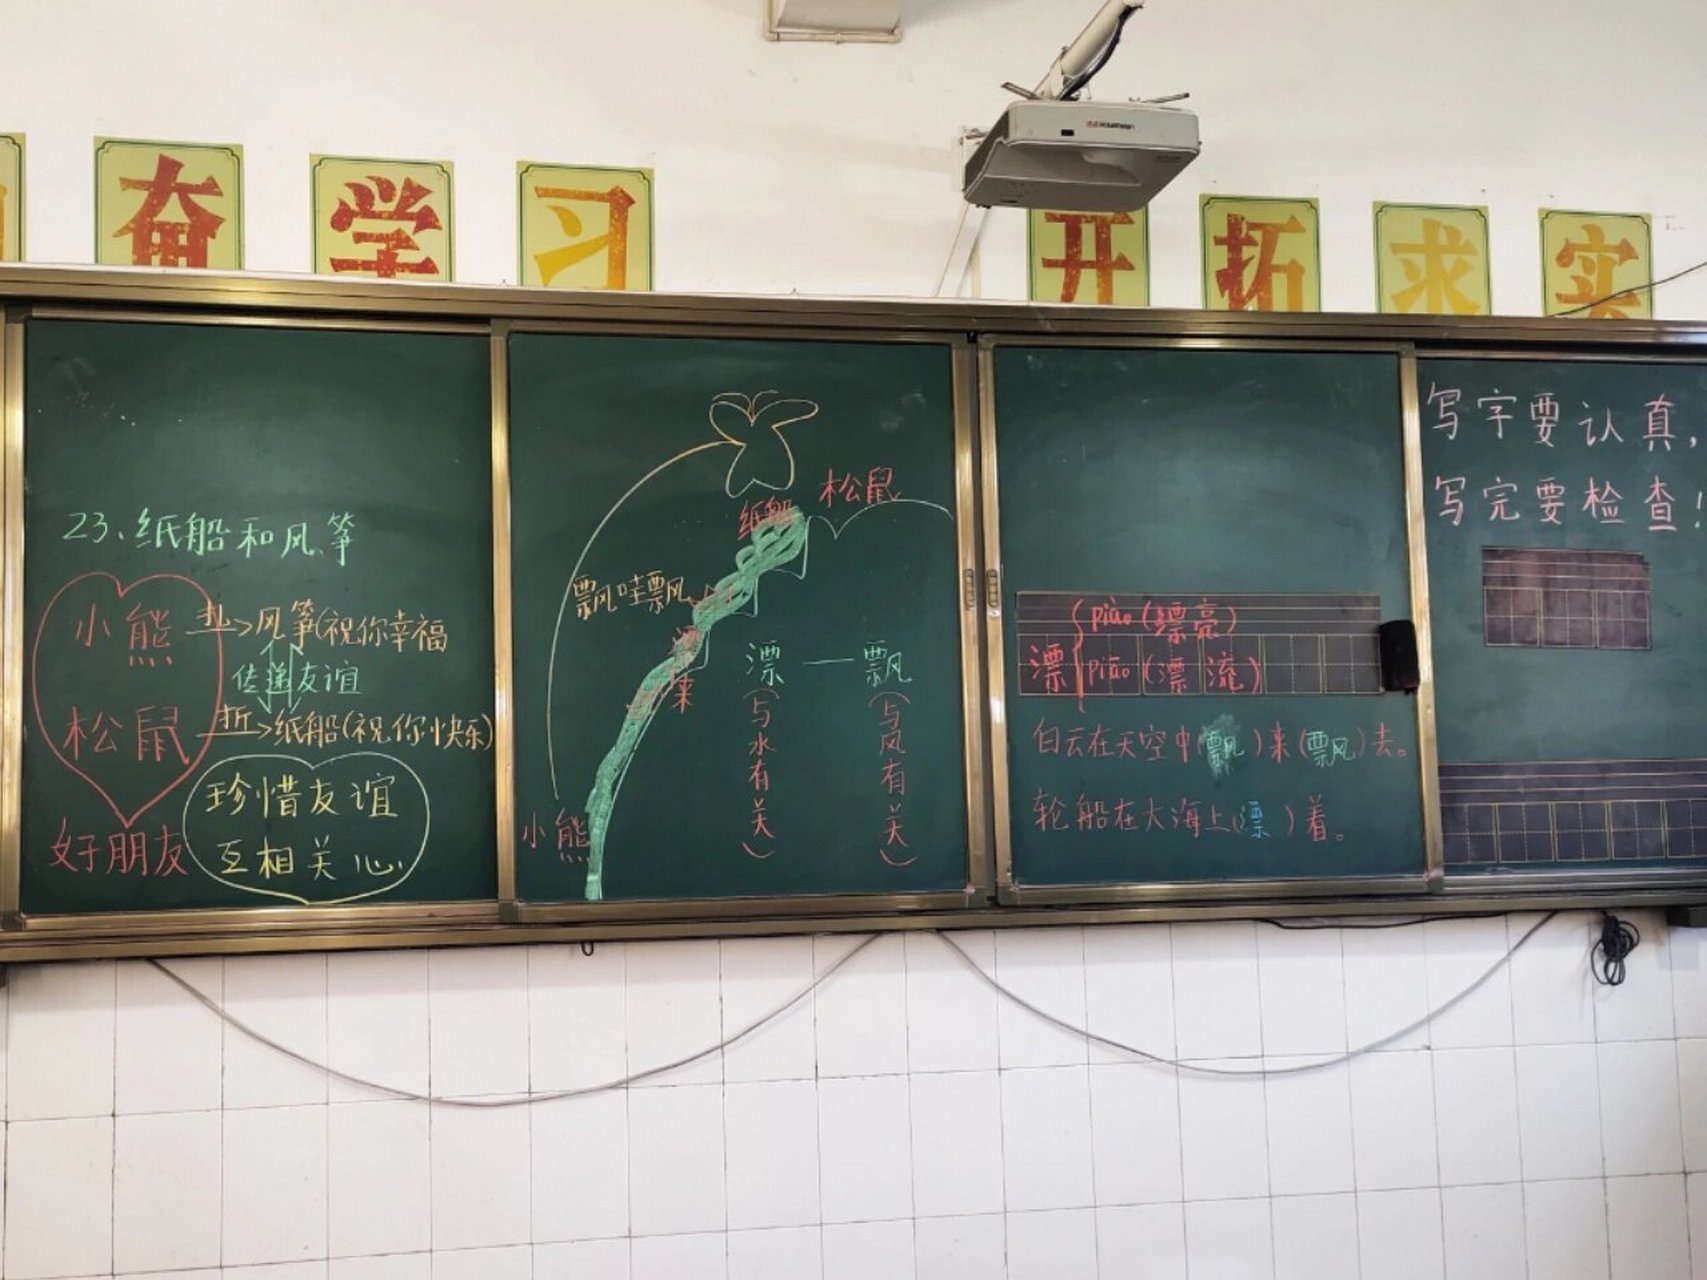 奋 学 习
开 拓 求 实
23、纸船和风筝
小熊 扎 风筝(祝你幸福
传递友谊
松鼠 折 纸船(祝你快乐)
好朋友
珍惜友谊
互相关心
松鼠
纸船
飘哇飘
来
小熊
漂——飘
(与水有关)
(与风有关)
漂
piào(漂亮)
piāo(漂流)
白云在天空中(飘)来(飘)去。
轮船在大海上(漂)着。
写字要认真,
写完要检查!